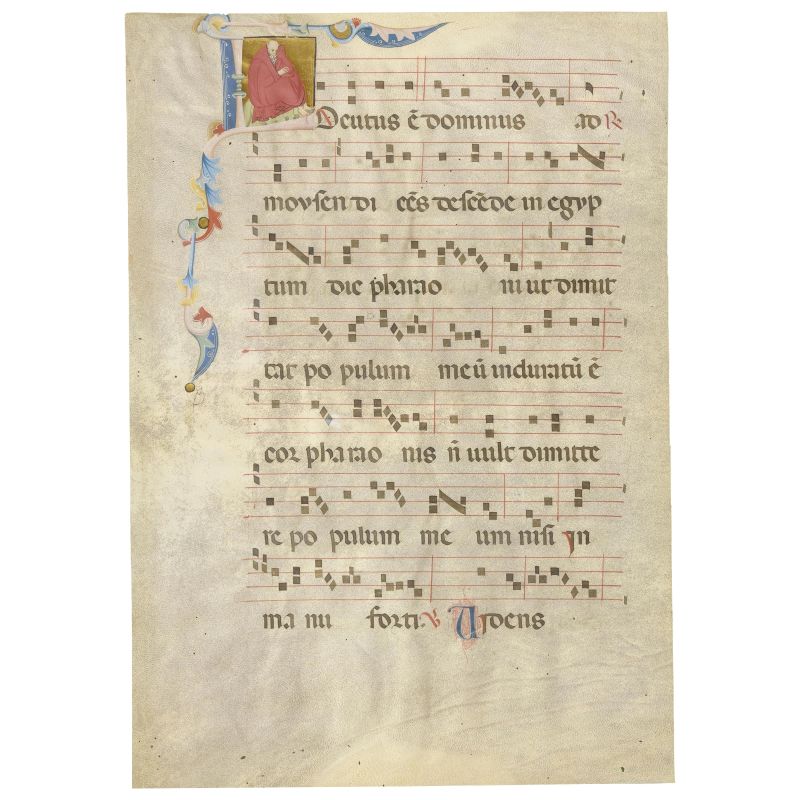 Locutus ē dominus ad R
moysen di cēs descēde in egyp
tum dic pharao ni ut dimit
tat po pulum meū induratū ē
cor pharao nis ñ uult dimitte
re po pulum me um nisi in
ma nu forti. V Videns